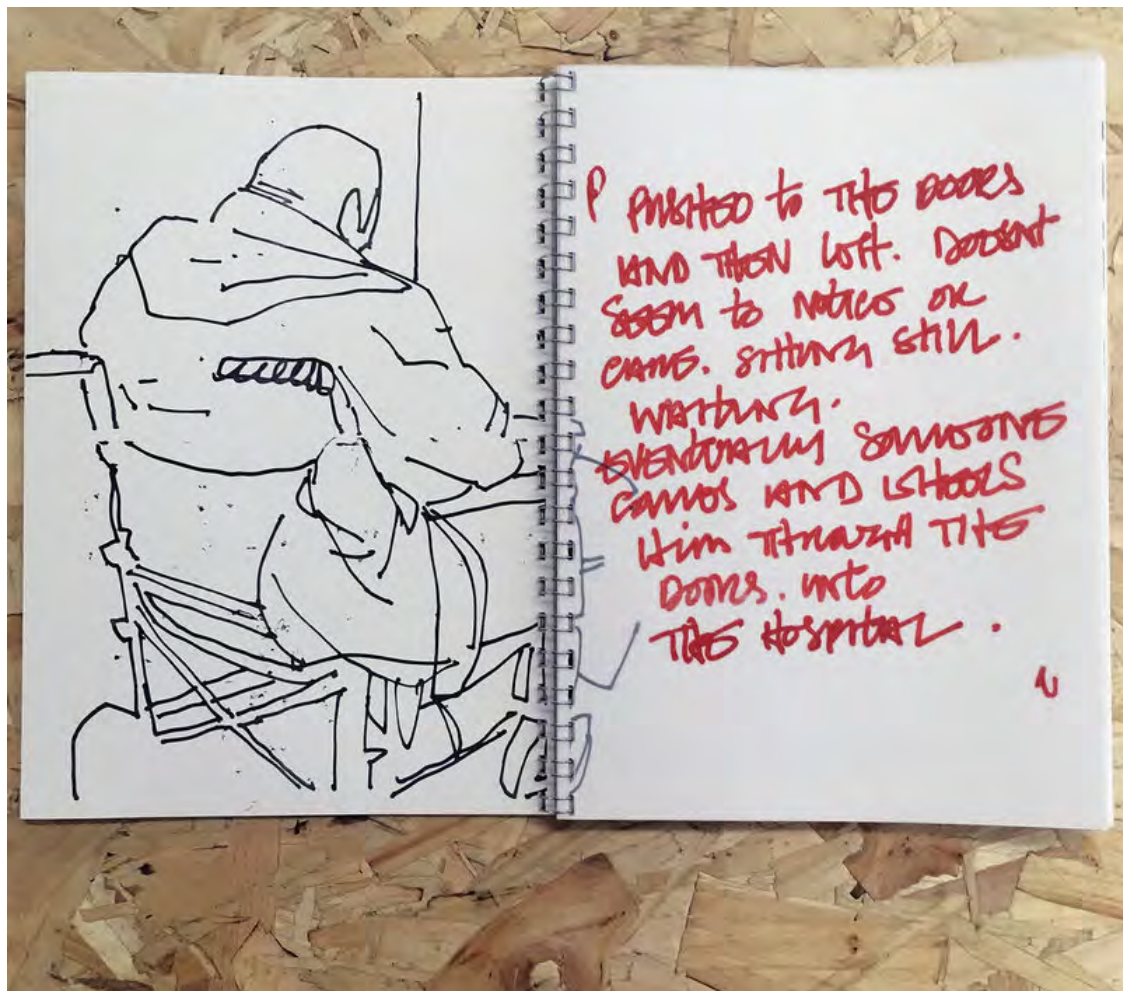 P PUSHED to THE DOORS
AND THEN LEFT. DOESNT
SEEM to NOTICE OR
CARE. SITTING STILL.
WAITING.
EVENTUALLY SOMEONE
COMES AND WHEELS
HIM THROUGH THE
DOORS. INTO
THE HOSPITAL.